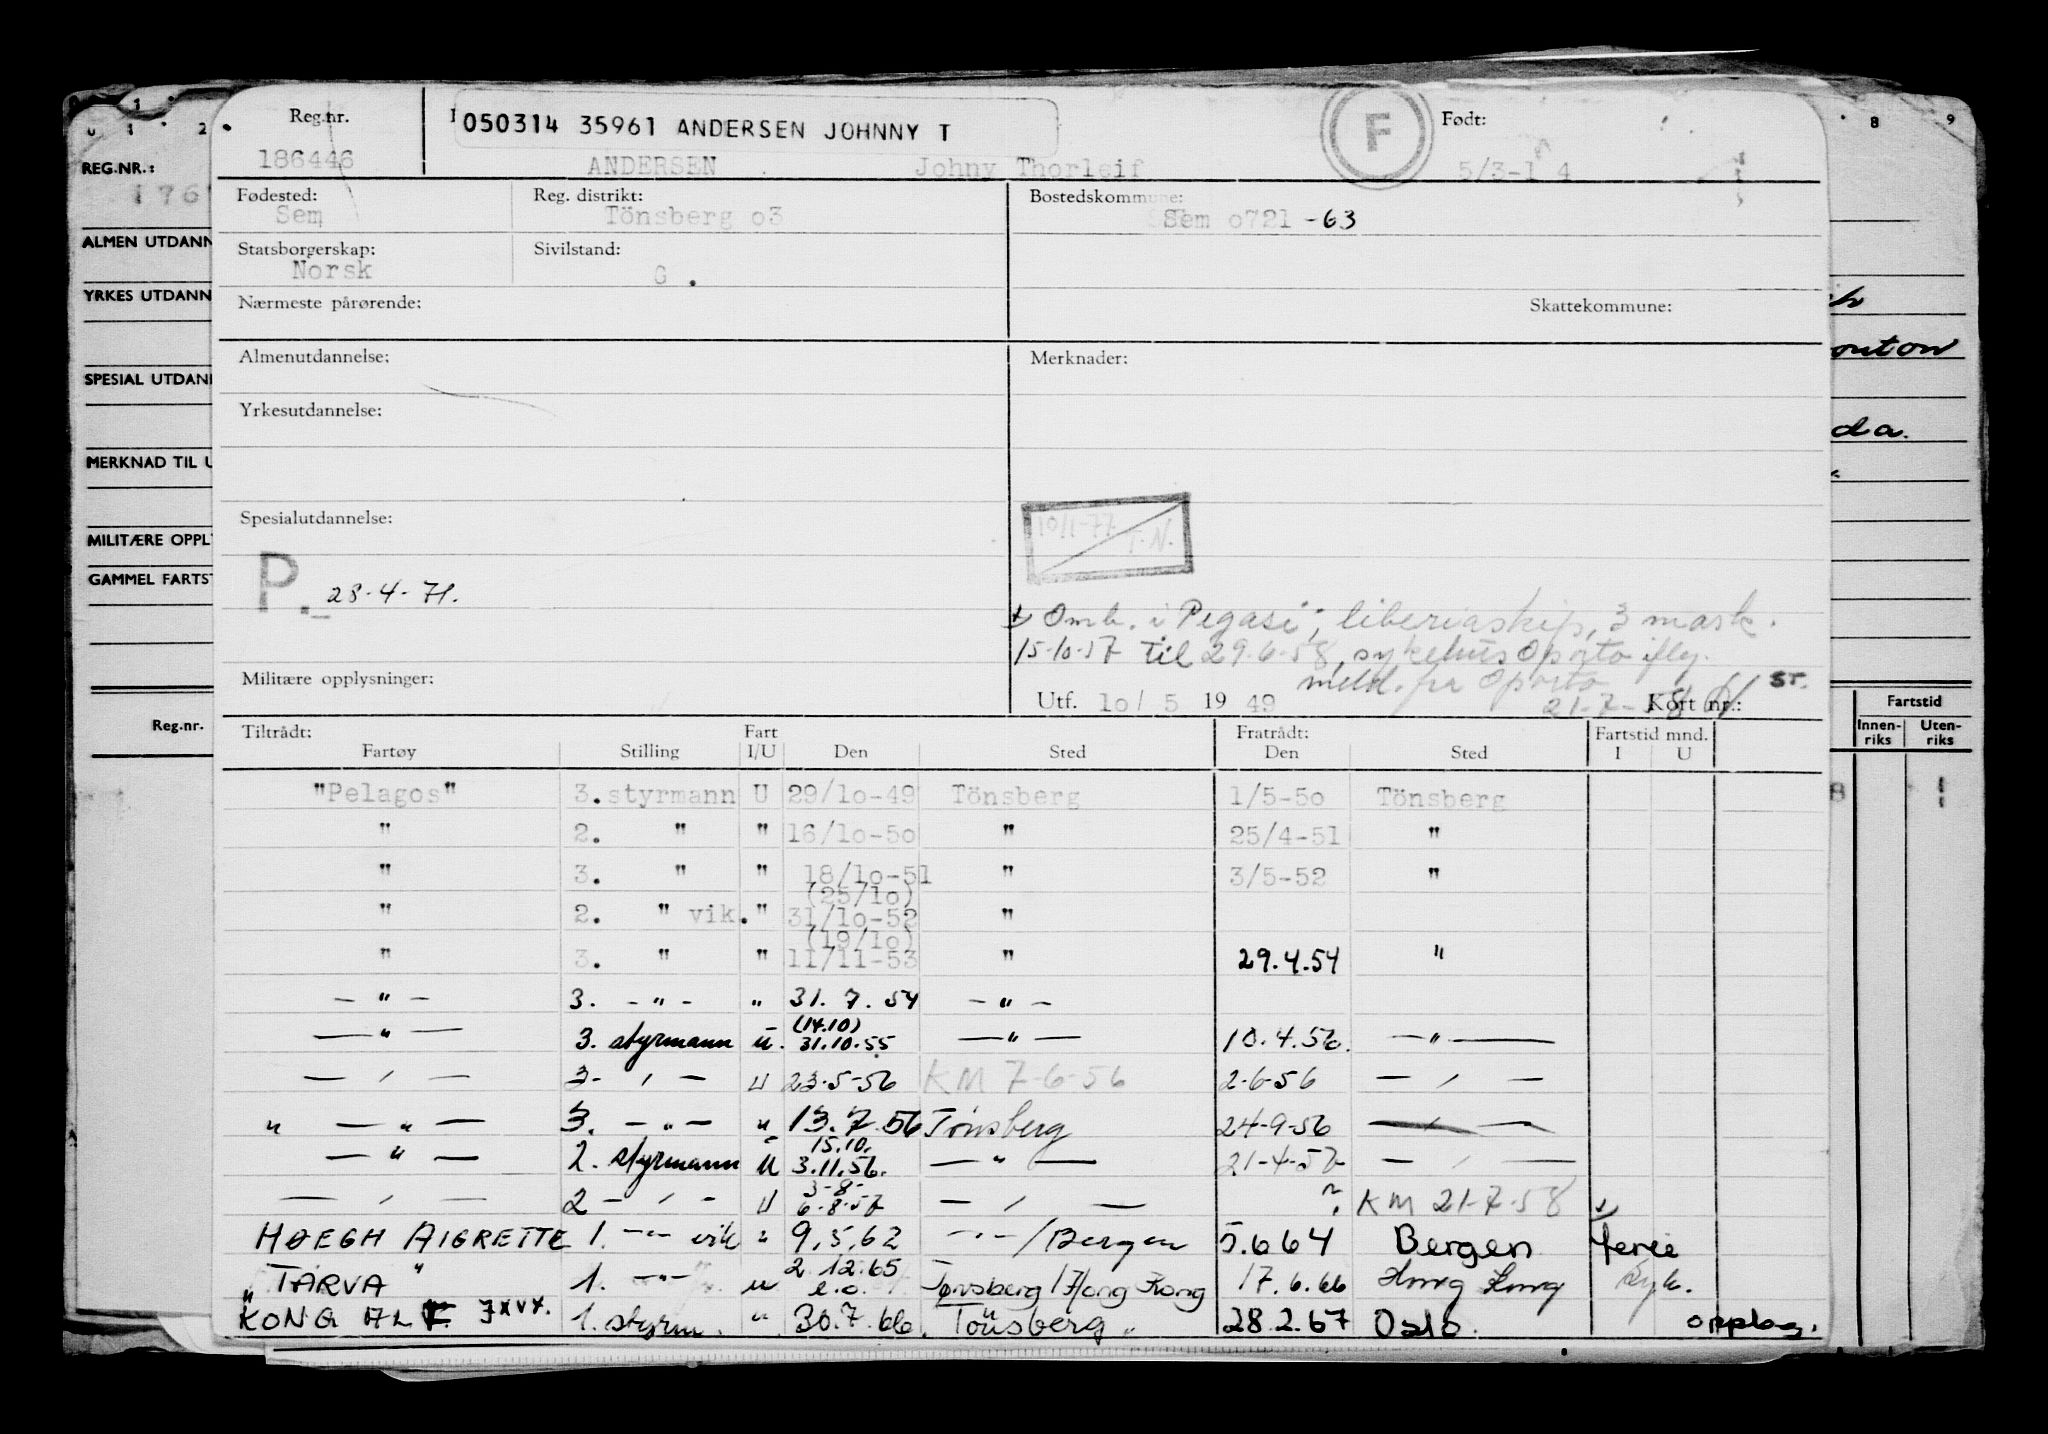 Reg.nr. 050314 35961 ANDERSEN JOHNNY T F Født:
186446 ANDERSEN Johny Thorleif 5/3-14
REG.NR.:
176
Fødested: Reg. distrikt: Bostedskommune:
Sem Tönsberg o3 Sem o721 -63
ALMEN UTDANN
Statsborgerskap: Sivilstand:
Norsk G.
YRKES UTDANN
Nærmeste pårørende: Skattekommune:
Almenutdannelse: Merknader:
SPESIAL UTDAN
Yrkesutdannelse:
da.
MERKNAD TIL U
Spesialutdannelse:
10/1-77 T.N.
MILITÆRE OPPL
GAMMEL FARTST
P. 28-4-71.
Omb. i "Pegasi", liberiaskip, 3 mask.
15-10-57 til 29-6-58, sykehus Oporto ifly.
Militære opplysninger: meld. fra Oporto ST.
Utf. 1o/ 5 19 49 21-7-58 Kort nr.:
Reg.nr. Fartstid
Innenriks Utenriks
Tiltrådt: Fart Fratrådt: Fartstid mnd.
Fartøy Stilling I/U Den Sted Den Sted I U
"Pelagos" 3. styrmann U 29/1o-49 Tönsberg 1/5-5o Tönsberg
" 2. " " 16/1o-5o " 25/4-51 "
" 3. " " 18/1o-51 " 3/5-52 "
(25/1o)
" 2. " vik. " 31/1o-52 "
(19/1o)
" 3. " " 11/11-53 " 29.4.54 "
— " — 3. — " — " 31. 7. 54 — " —
(14.10)
— " — 3. styrmann u. 31.10.55 — " — 10.4.56. — " —
— ' — 3- ' — U 23-5-56 KM 7-6-56 2-6-56 — ' —
" — " — 3. — " — " 13.7.56 Tönsberg 24-9-56 — ' —
15.10.
— " — 2. styrmann U 3.11.56. — " — 21-4-57 — ' —
3-8-
— ' — 2 — ' — U 6-8-57 — ' — ? KM 21-7-58
HØEGH AIGRETTE 1. — " — vik " 9.5.62 — " — / Bergen 5.664 Bergen ferie
2.12.65
"TARVA" 1. — " — u e.o. Tønsberg / Hong Kong 17.6.66 Hong Kong Syk.
KONG ALF JXVX. 1. styrm. " 30.7.66. Tönsberg 28.2.67 Oslo. opplag.